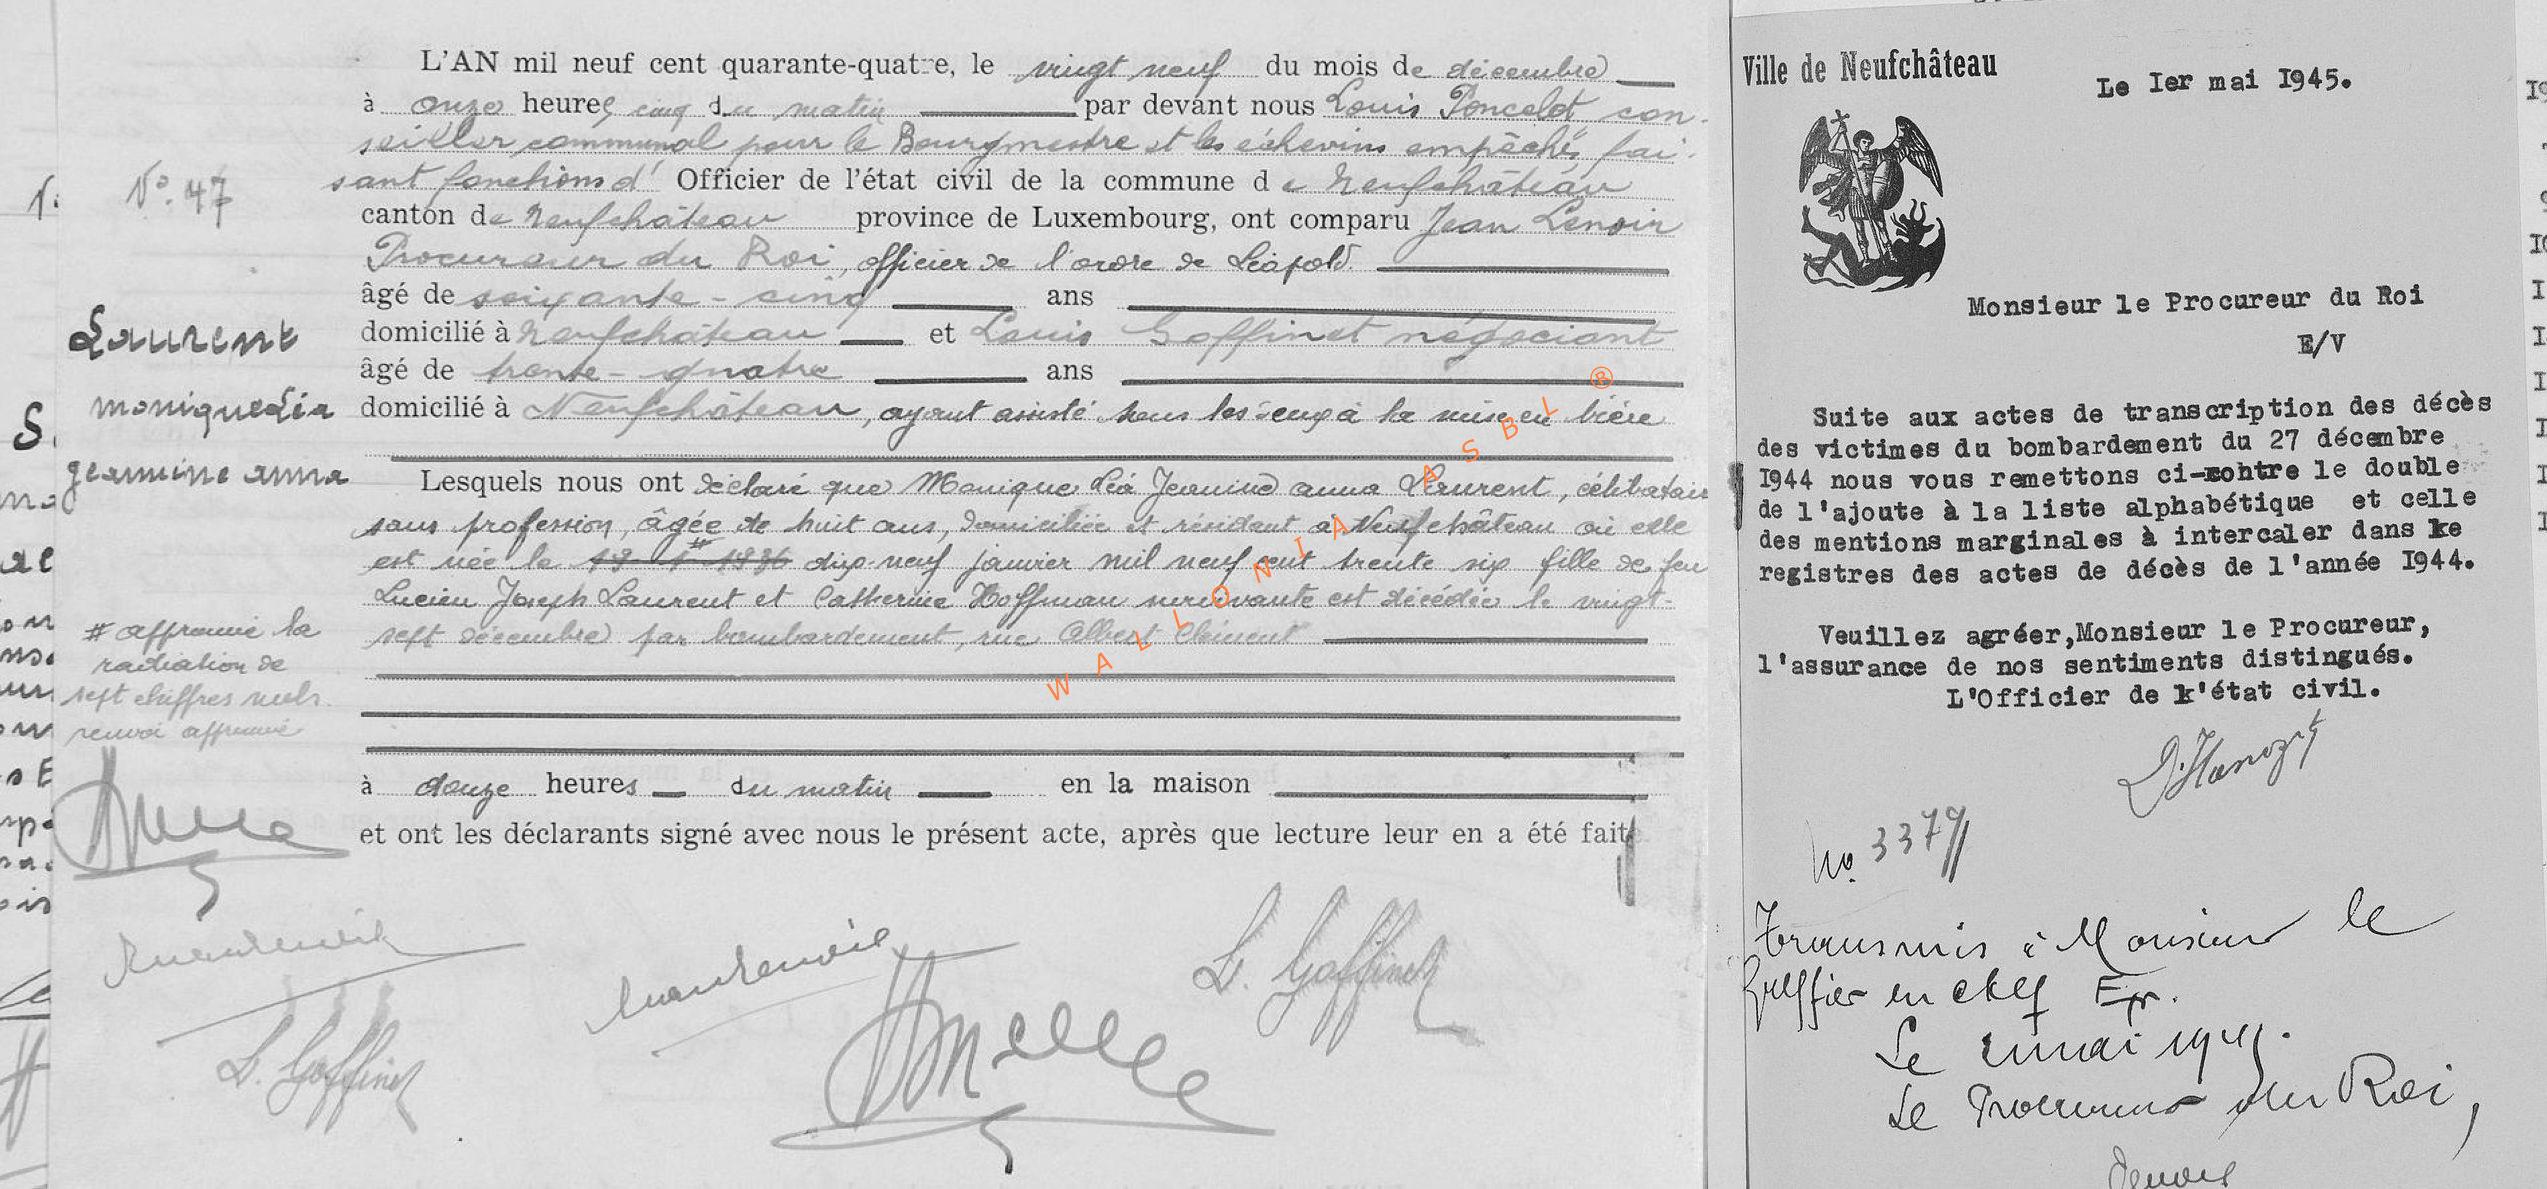 L'AN mil neuf cent quarante-quatre, le vingt neuf du mois de décembre
à onze heures cinq du matin par devant nous Louis Poncelet con-
seiller communal pour le Bourgmestre et les échevins empêchés, fai-
sant fonctions d' Officier de l'état civil de la commune de Neufchâteau
canton de Neufchâteau province de Luxembourg, ont comparu Jean Lenoir
Procureur du Roi, officier de l'ordre de Léopold.
âgé de soixante-cinq ans
domicilié à Neufchâteau et Louis Goffinet négociant
âgé de trente-quatre ans
domicilié à Neufchâteau, ayant assisté tous les deux à la mise en bière
Lesquels nous ont déclaré que Monique Léa Jeanine Anna Laurent, célibataire
sans profession, âgée de huit ans, domiciliée et résidant à Neufchâteau où elle
est née le 19-1-1936 # dix-neuf janvier mil neuf cent trente six fille de feu
Lucien Joseph Laurent et Catherine Hoffman survivante est décédée le vingt-
sept décembre par bombardement, rue Albert Clément
à douze heures du matin en la maison
et ont les déclarants signé avec nous le présent acte, après que lecture leur en a été faite
N° 47
Laurent
Monique Léa
Jeannine Anna
# approuvé la
radiation de
sept chiffres nuls
renvoi approuvé
L. Goffinet
L. Goffinet
WALLONIA ASBL ®
Ville de Neufchâteau
Le 1er mai 1945.
Monsieur le Procureur du Roi
E/V
Suite aux actes de transcription des décès
des victimes du bombardement du 27 décembre
1944 nous vous remettons ci-contre le double
de l'ajoute à la liste alphabétique et celle
des mentions marginales à intercaler dans ke
registres des actes de décès de l'année 1944.
Veuillez agréer,Monsieur le Procureur,
l'assurance de nos sentiments distingués.
L'Officier de k'état civil.
No 3379
Transmis à Monsieur le
Greffier en chef E/V.
Le 2 mai 1945.
Le Procureur du Roi,
Lenoir